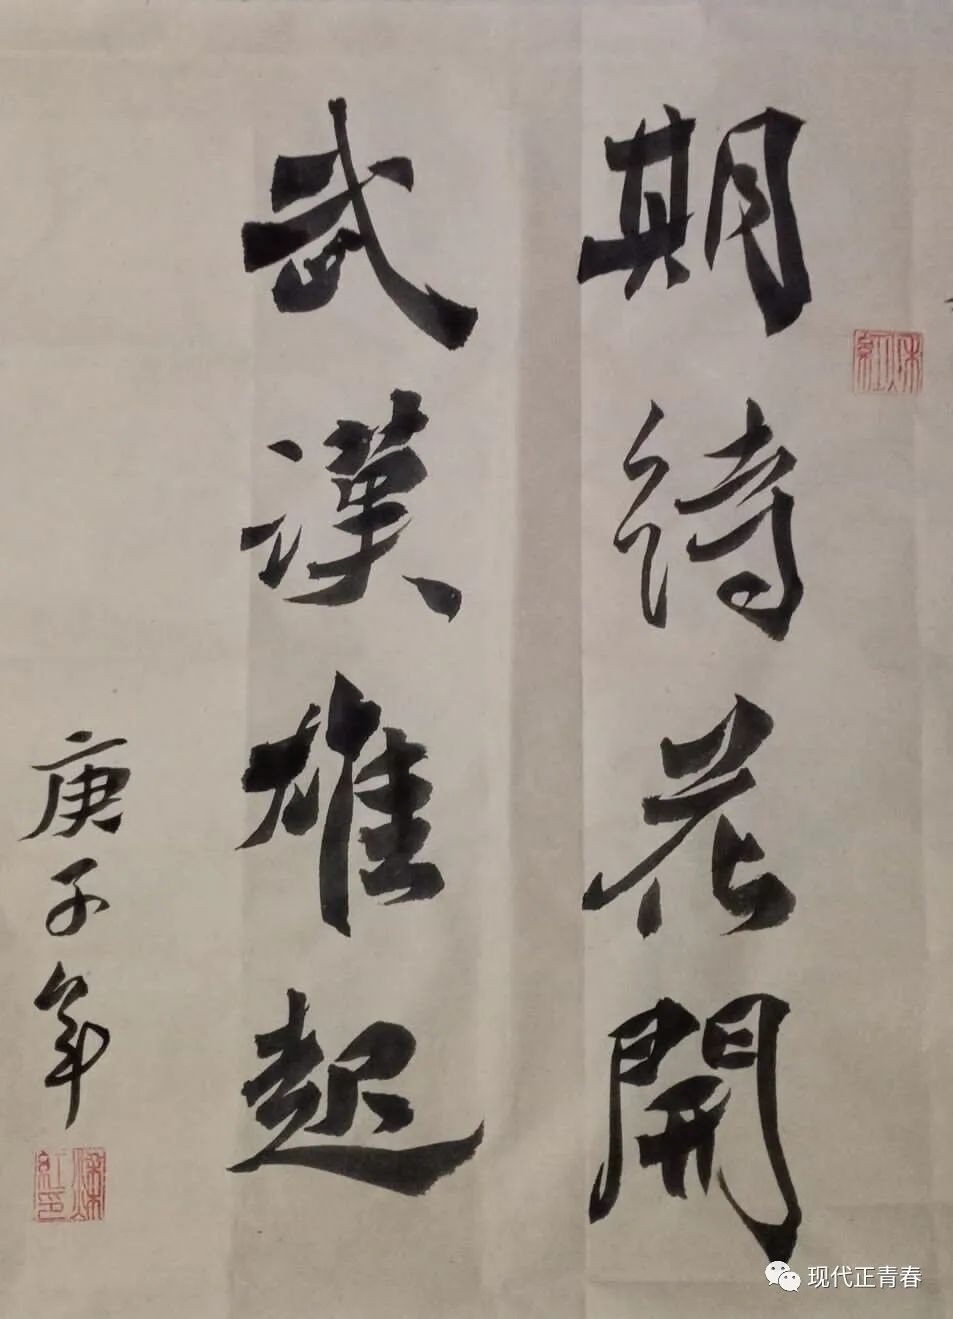 期待花開
武漢雄起
庚子年
现代正青春